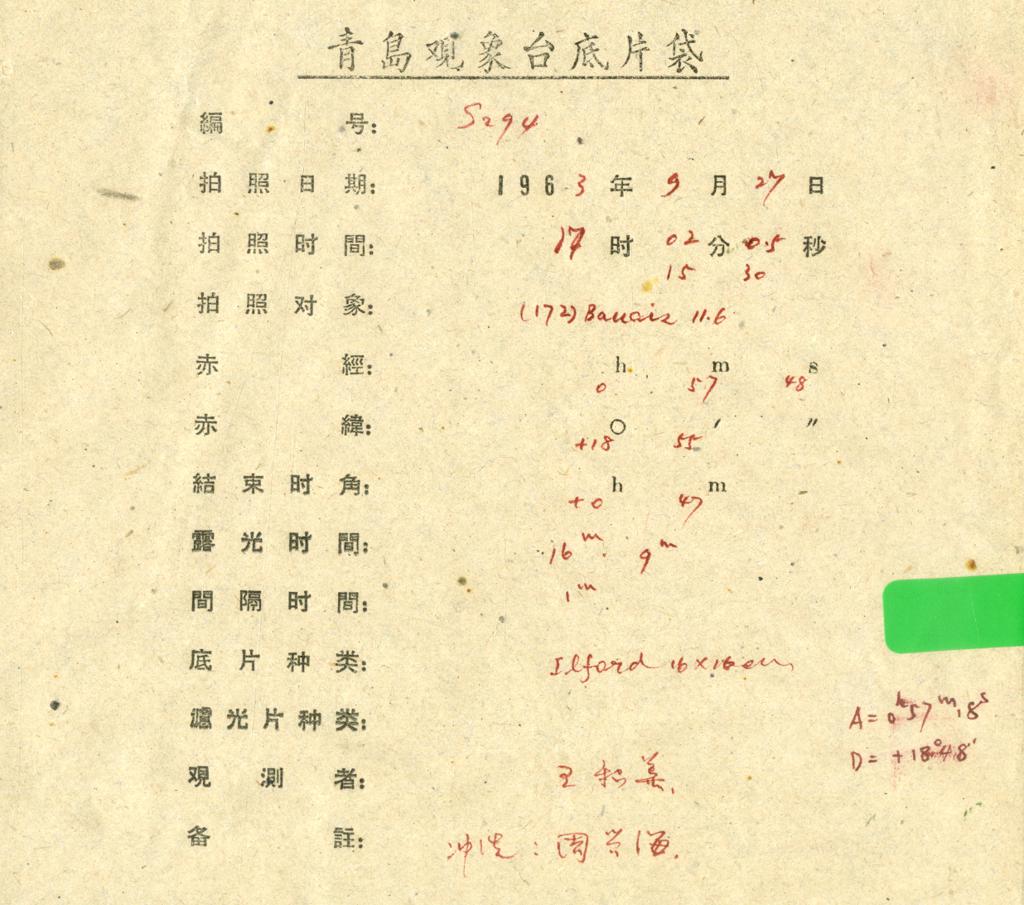 青島观象台底片袋
編号: S294
拍照日期: 1963年9月27日
拍照时間: 17时02分05秒
15 30
拍照对象: (172) Baucis 11.6
赤經: 0h 57m 48s
赤緯: +18° 55′ ″
結束时角: +0h 47m
露光时間: 16m. 9m
間隔时間: 1m
底片种类: Ilford 16×16cm
濾光片种类:
A = 0h 57m 18s
D = +18° 48′
观測者: 王
备註: 冲洗: 周兴海.